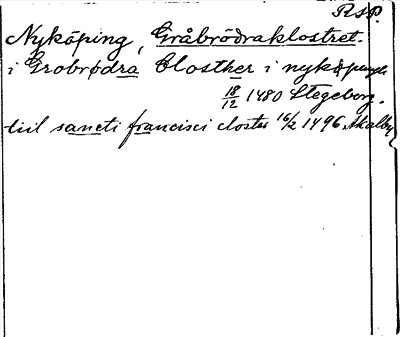 RAP.
Nyköping, Gråbrödraklostret.
i Grobrødra Closther i nykøpungh
18/12 1480 Stegeborg.
till sancti francisci closter 16/2 1496. Skalby